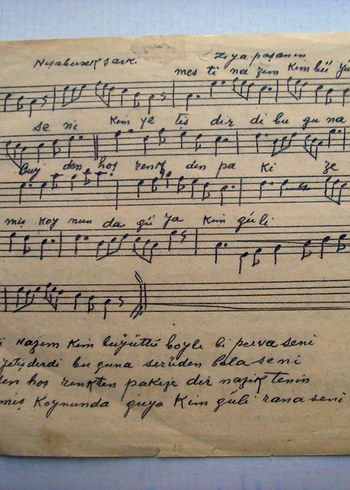 Nişaburek şarkı Ziya paşanın
mes ti na zım kim bü yü
se ni kim ye tiş dir di bu gu na
Buy den hoş renk den pa ki ze
miş koy nun da gü ya kim gü li
Nazım kim büyüttü böyle bi perva seni
yetişdirdi bu guna serüden bala seni
den hoş renkten pakize dir nazik tenin
miş koynunda guya kim güli rana seni